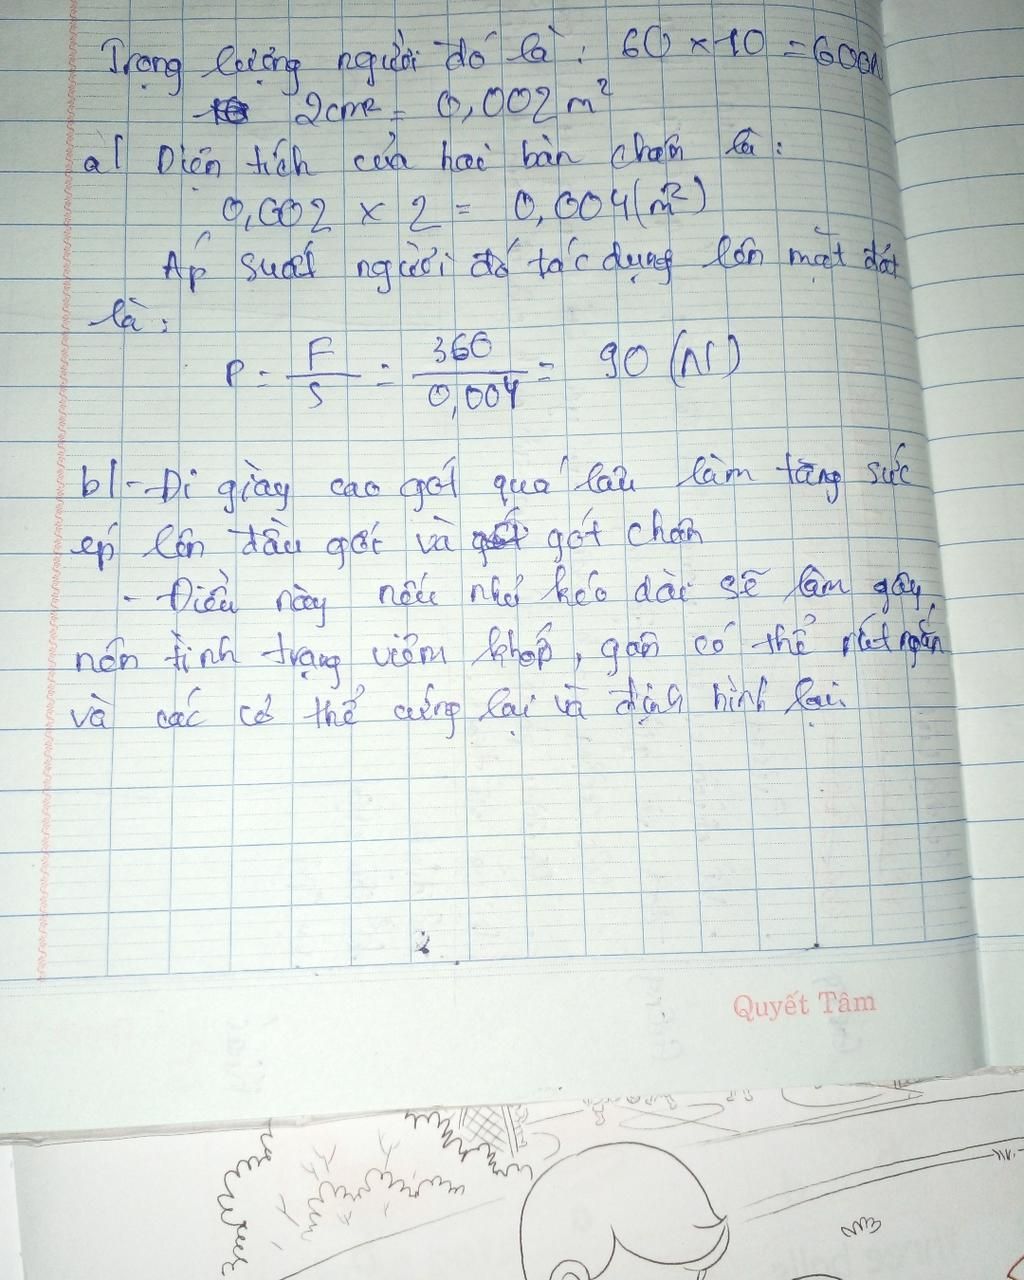 Trọng lượng người đó là: 60 × 10 = 600N
2cm² = 0,002 m²
a/ Diện tích của hai bàn chân là:
0,002 × 2 = 0,004 (m²)
Áp suất người đó tác dụng lên mặt đất
là:
P = F/S = 360/0,004 = 90 (N)
b/ - Đi giày cao gót quá lâu làm tăng sức
ép lên đầu gối và gót chân
- Điều này nếu như kéo dài sẽ làm gây
nên tình trạng viêm khớp, gân có thể rút ngắn
và các cơ thể cứng lại và định hình lại.
Quyết Tâm